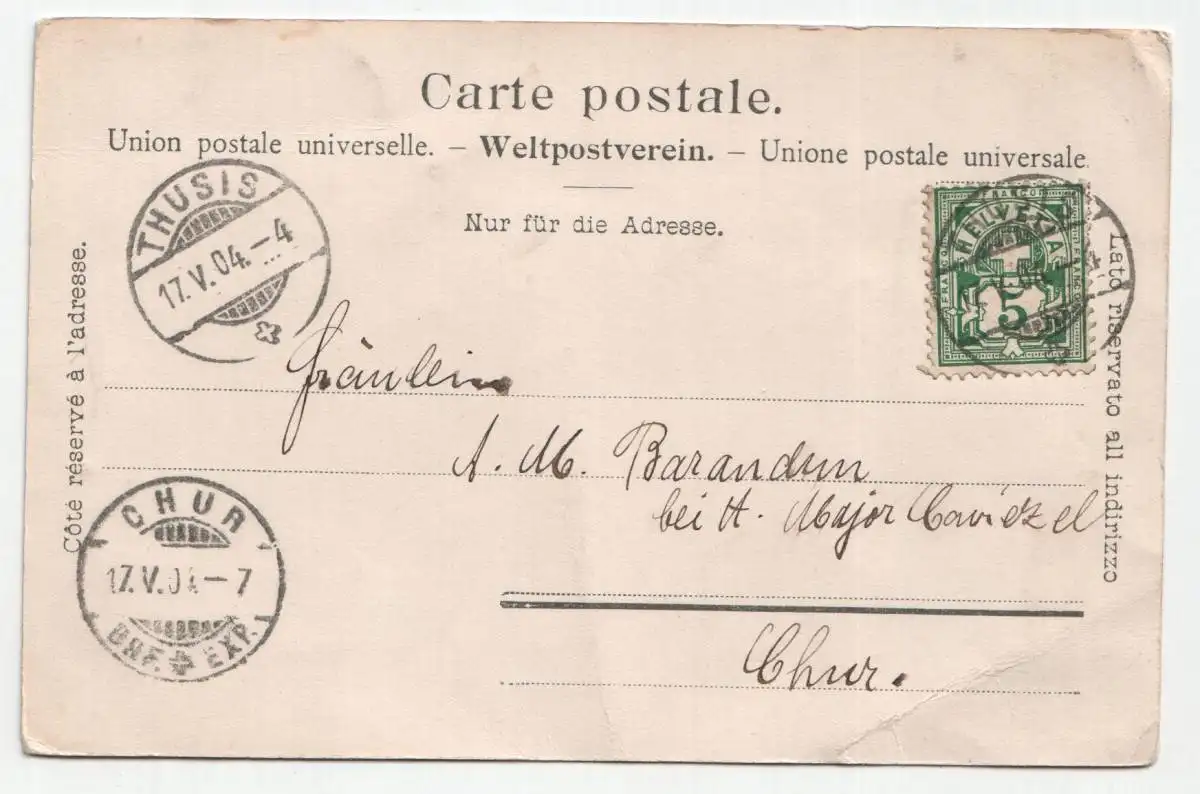 Carte postale.
Union postale universelle. – Weltpostverein. – Unione postale universale.
Nur für die Adresse.
Côté réservé à l'adresse.
Lato riservato all indirizzo
THUSIS
17.V.04.–4
FRANCO
HELVETIA
FRANCO
5
Fräulein
A. M. Barandun
bei H. Major Caviezel
CHUR
17.V.04–7
BHF. EXP.
Chur.